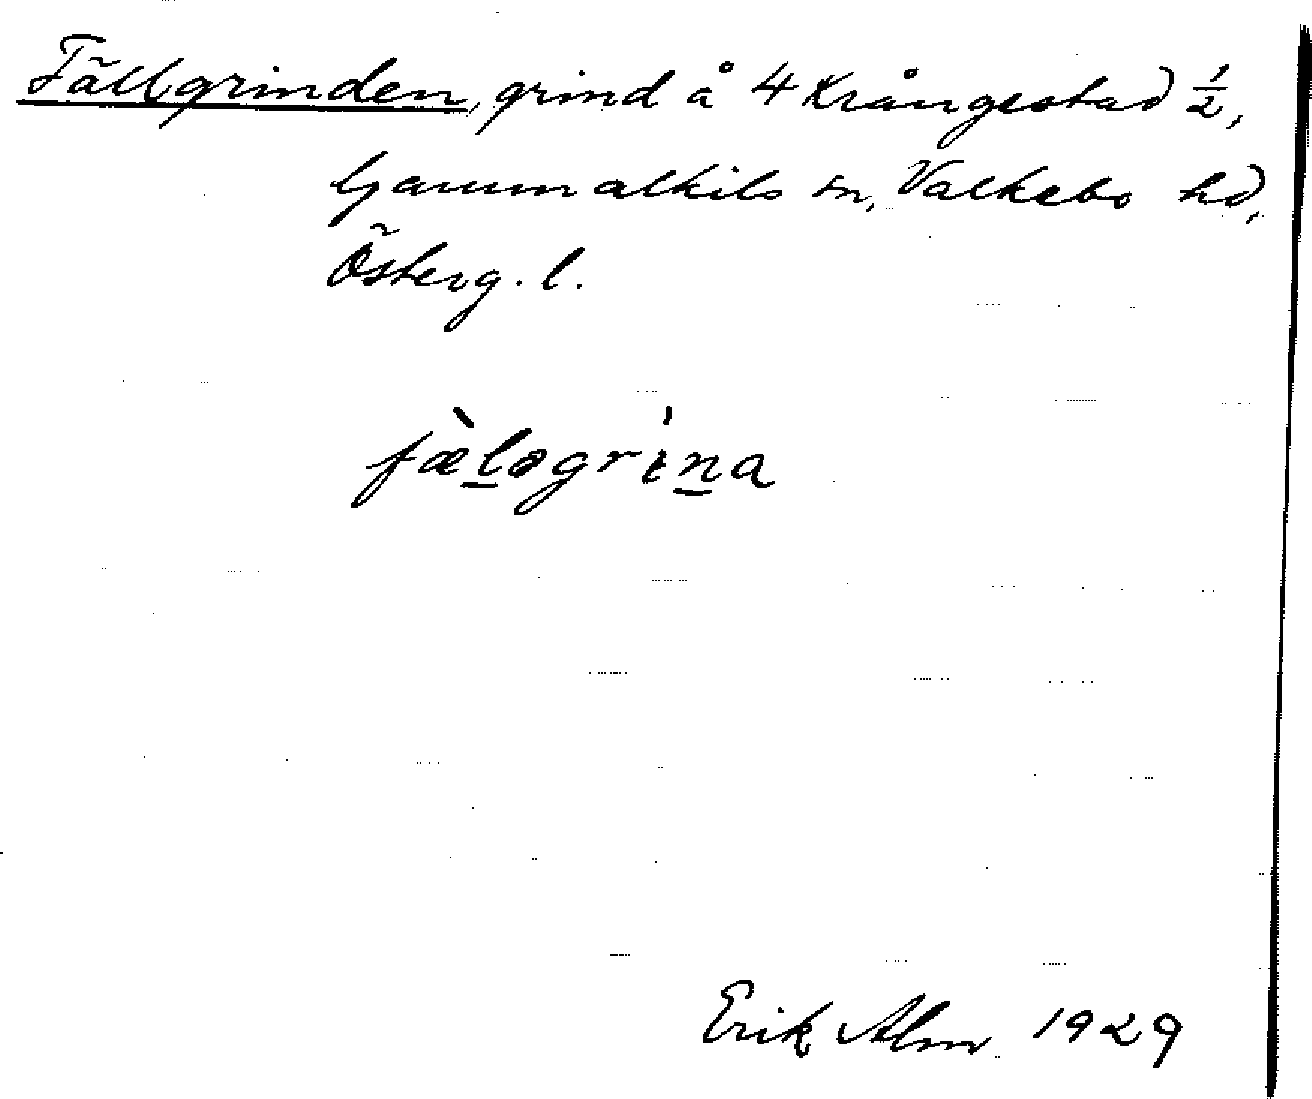 Fällgrinden, grind å 4 Krångestad ½,
Gammalkils sn, Valkebo hd,
Österg. l.
fæ̀ləgrina
Erik Alm 1929